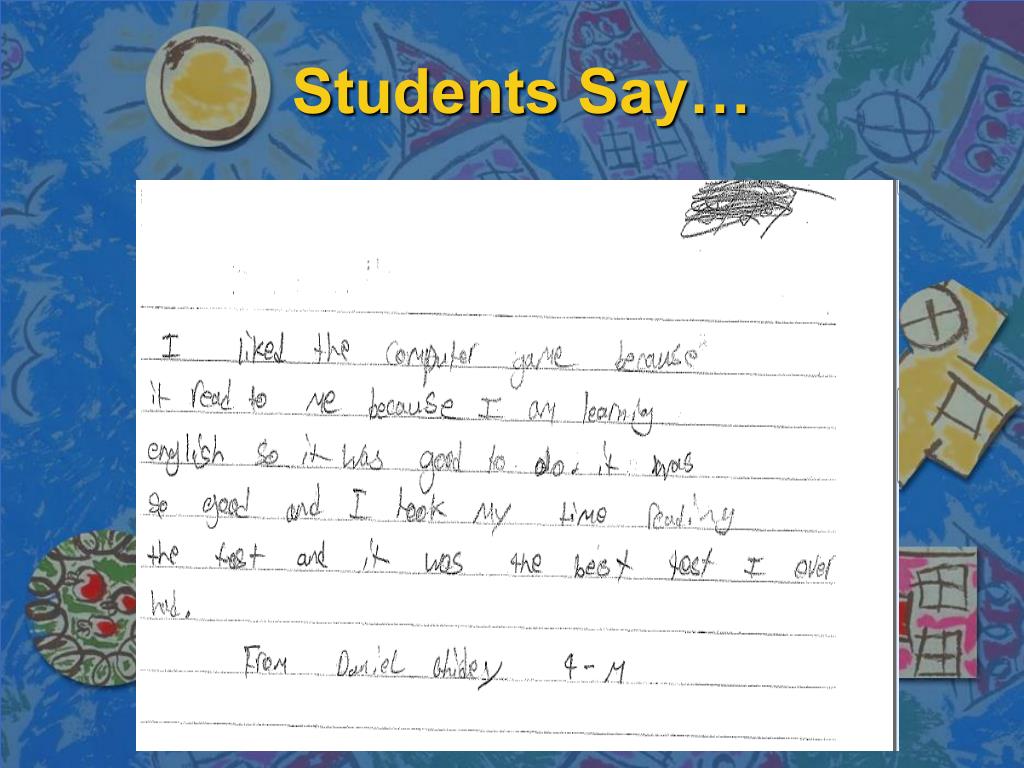 Students Say…
I liked the computer game because
it read to me because I am learning
english so it was good to do. it was
so good and I took my time reading
the test and it was the best test I ever
had.
From Daniel 4-M